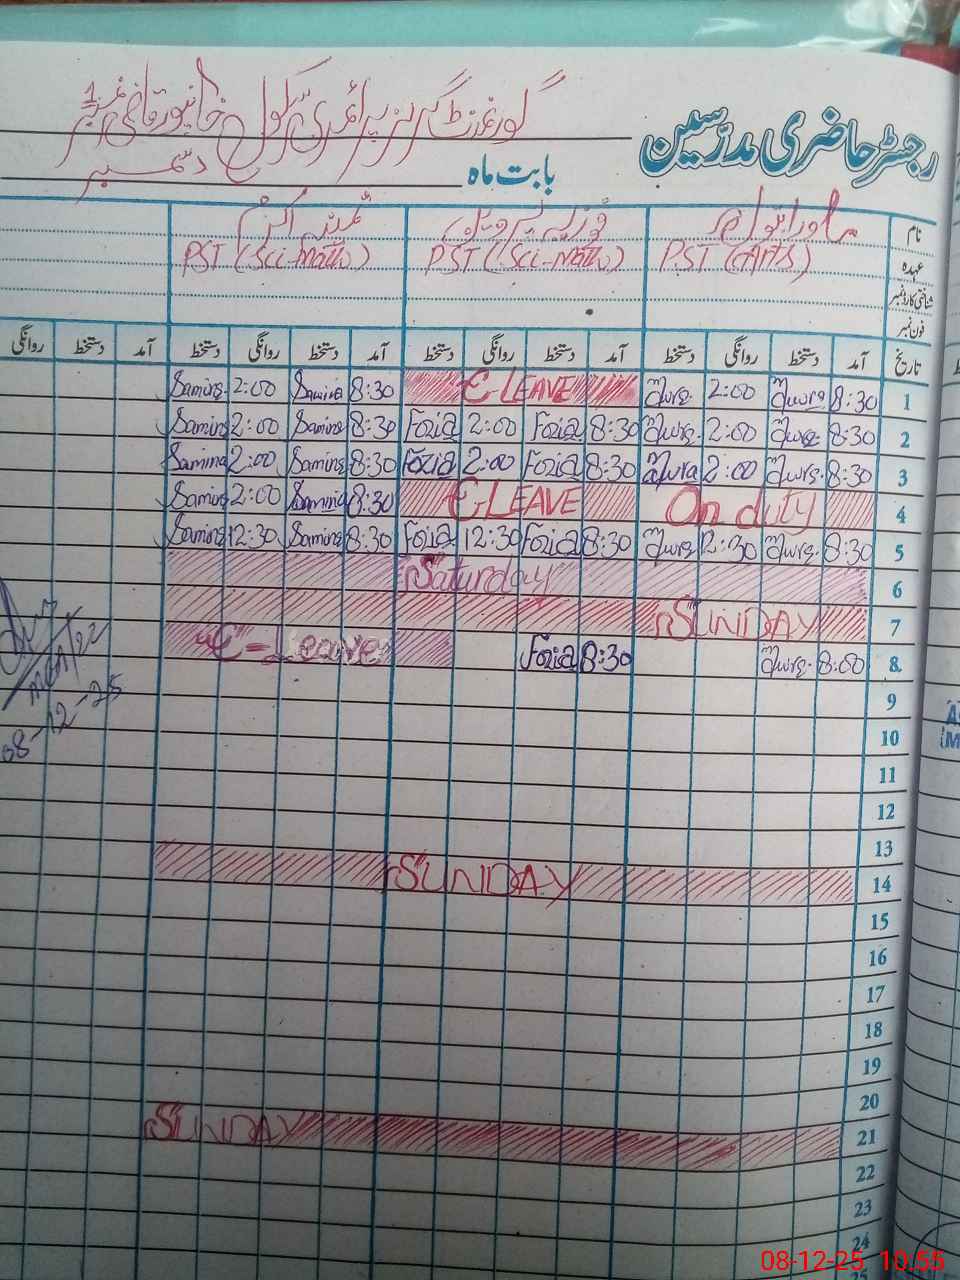 رجسٹر حاضری مدرسین
گورنمنٹ گرلز پرائمری سکول خانپور قاضی نمبر 1
بابت ماہ دسمبر
نام فوزیہ ثمینہ اکرم
عہدہ PST (Arts) PST (Sci-Math) PST (Sci-Math)
شناختی کارڈ نمبر
فون نمبر
تاریخ آمد دستخط روانگی دستخط آمد دستخط روانگی دستخط آمد دستخط روانگی دستخط آمد دستخط روانگی
1 8:30 2:00 C-LEAVE 8:30 Samina 2:00 Samina
2 8:30 2:00 8:30 Fozia 2:00 Fozia 8:30 Samina 2:00 Samina
3 8:30 2:00 8:30 Fozia 2:00 Fozia 8:30 Samina 2:00 Samina
4 On duty C-LEAVE 8:30 Samina 2:00 Samina
5 8:30 12:30 8:30 Fozia 12:30 Fozia 8:30 Samina 12:30 Samina
6 Saturday
7 SUNDAY
8 8:00 8:30 Fozia C-Leave
9
10
11
12
13
14 SUNDAY
15
16
17
18
19
20
21 SUNDAY
22
23
24
08-12-25
08-12-25 10.55